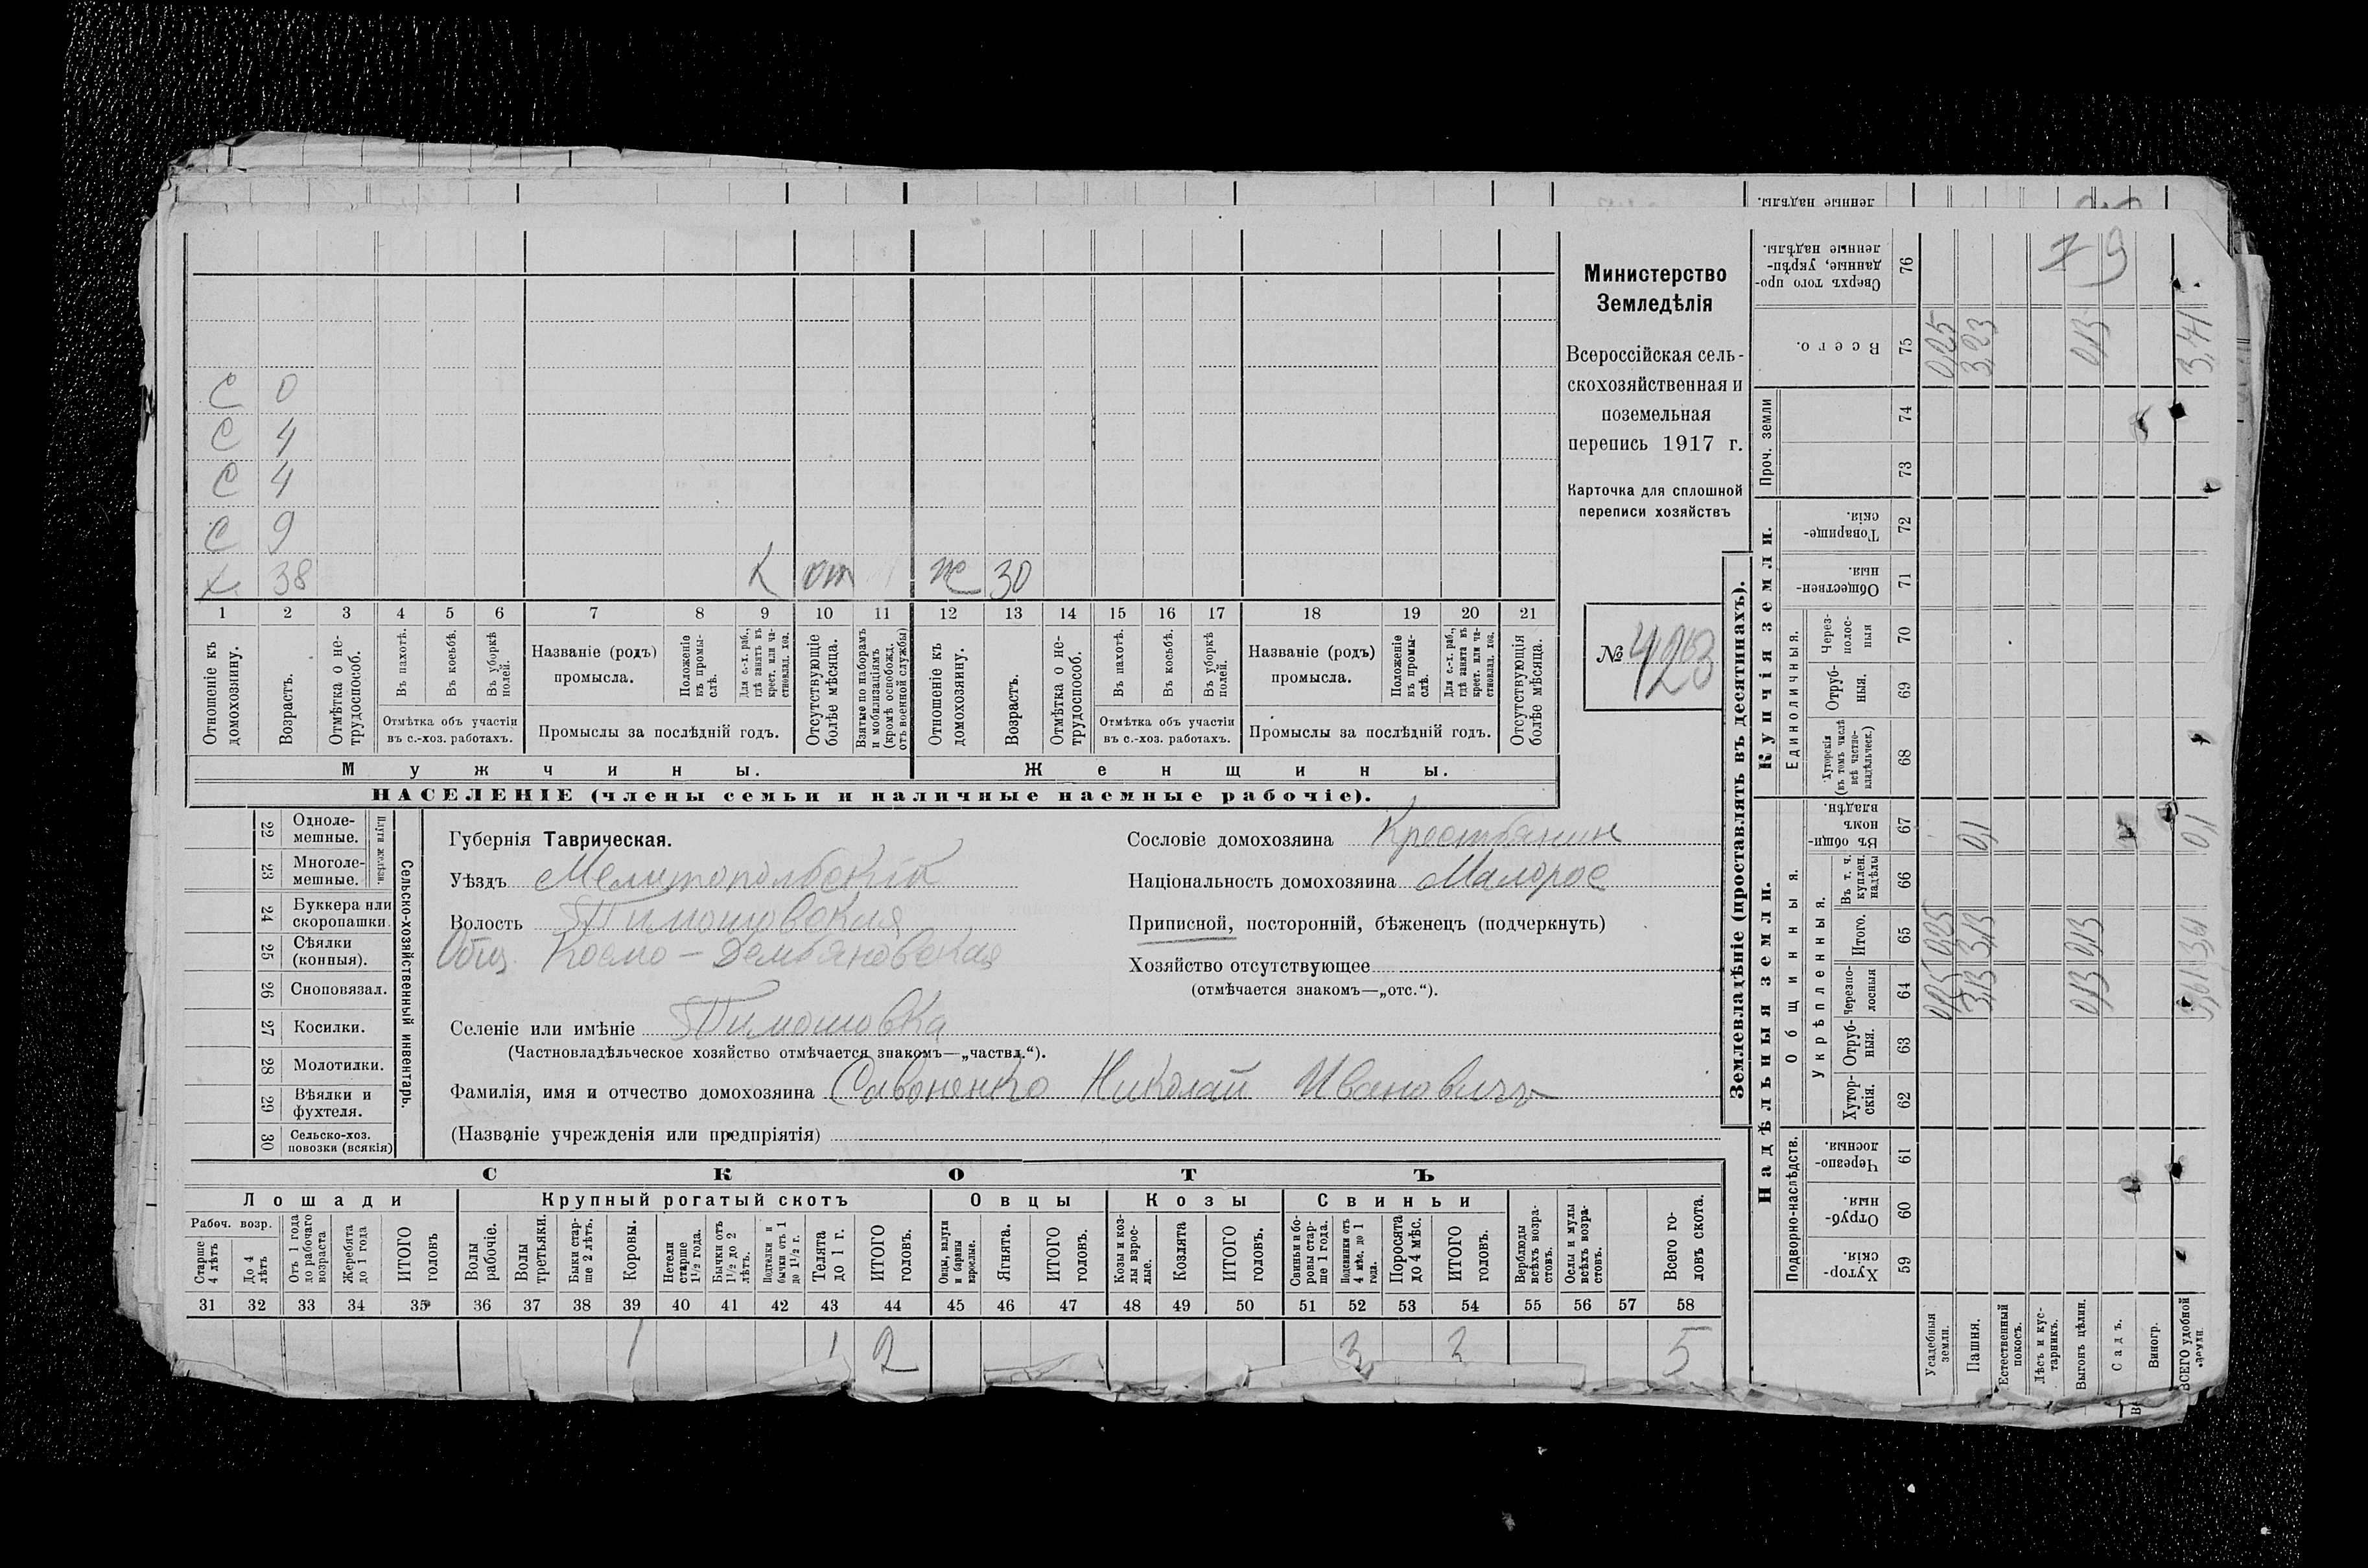 Министерство
Земледѣлія
Всероссійская сель-
скохозяйственная и
поземельная
перепись 1917 г.
Карточка для сплошной
переписи хозяйствъ
№ 423
С 0
С 4
С 4
С 9
х 38 х от ж 30
1 2 3 4 5 6 7 8 9 10 11 12 13 14 15 16 17 18 19 20 21
Отношеніе къ домохозяину.
Возрастъ.
Отмѣтка о не-трудоспособ.
Въ пахотѣ.
Въ косьбѣ.
Въ уборкѣ полей.
Отмѣтка объ участіи
въ с.-хоз. работахъ.
Названіе (родъ)
промысла.
Положеніе въ промы-слѣ.
Для с.-х. раб., гдѣ занятъ въ крест. или ча-стновлад. хоз.
Промыслы за послѣдній годъ.
Отсутствующіе болѣе мѣсяца.
Взятые по наборамъ и мобилизаціямъ (кромѣ освобожд. отъ военной службы)
Отношеніе къ домохозяину.
Возрастъ.
Отмѣтка о не-трудоспособ.
Въ пахотѣ.
Въ косьбѣ.
Въ уборкѣ полей.
Отмѣтка объ участіи
въ с.-хоз. работахъ.
Названіе (родъ)
промысла.
Положеніе въ промы-слѣ.
Для с.-х. раб., гдѣ занята въ крест. или ча-стновлад. хоз.
Промыслы за послѣдній годъ.
Отсутствующія болѣе мѣсяца.
Мужчины.
Женщины.
НАСЕЛЕНІЕ (члены семьи и наличные наемные рабочіе).
22 Одноле-мешные.
23 Многоле-мешные.
Плуги желѣзн.
24 Буккера или скоропашки
25 Сѣялки (конныя).
26 Сноповязал.
27 Косилки.
28 Молотилки.
29 Вѣялки и фухтеля.
30 Сельско-хоз. повозки (всякія)
Сельско-хозяйственный инвентарь.
Губернія Таврическая.
Уѣздъ Мелитопольскій
Волость Тимошовская
Общ. Космо-Демьяновская
Селеніе или имѣніе Тимошовка
(Частновладѣльческое хозяйство отмѣчается знакомъ—„частвл.“).
Фамилія, имя и отчество домохозяина Савоненко Николай Ивановичъ
(Названіе учрежденія или предпріятія)
Сословіе домохозяина Крестьянин
Національность домохозяина Малорос
Приписной, посторонній, бѣженецъ (подчеркнуть)
Хозяйство отсутствующее
(отмѣчается знакомъ—„отс.“).
СКОТЪ
Лошади
Крупный рогатый скотъ
Овцы
Козы
Свиньи
Рабоч. возр.
Старше 4 лѣтъ
До 4 лѣтъ
Отъ 1 года до рабочаго возраста
Жеребята до 1 года
ИТОГО головъ
Волы рабочіе.
Волы третьяки.
Быки стар-ше 2 лѣтъ.
Коровы.
Нетели старше 1 1/2 года.
Бычки отъ 1 1/2 до 2 лѣтъ.
Подтелки и бычки отъ 1 до 1 1/2 г.
Телята до 1 г.
ИТОГО головъ.
Овцы, валухи и бараны взрослые.
Ягнята.
ИТОГО головъ.
Козы и коз-лы взрос-лые.
Козлята
ИТОГО головъ.
Свиньи и бо-ровы стар-ше 1 года.
Подсвинки отъ 4 мѣс. до 1 года.
Поросята до 4 мѣс.
ИТОГО головъ.
Верблюды всѣхъ возра-стовъ.
Ослы и мулы всѣхъ возра-стовъ.
Всего го-ловъ скота.
31 32 33 34 35 36 37 38 39 40 41 42 43 44 45 46 47 48 49 50 51 52 53 54 55 56 57 58
1 1 2 3 3 5
Землевладѣніе (проставлять въ десятинахъ).
Надѣльныя земли.
Купчія земли.
Проч. земли
Подворно-наслѣдств.
Общинныя.
Укрѣпленныя.
Единоличныя.
Хутор-скія. 59
Отруб-ныя. 60
Черезпо-лосныя 61
Хутор-скія. 62
Отруб-ныя. 63
Черезпо-лосныя 64
Итого. 65
Въ т. ч. куплен. надѣлы 66
Въ общи-номъ владѣн. 67
Хуторскія (въ томъ числѣ всѣ частно-владѣльческ.) 68
Отруб-ныя. 69
Через-полос-ныя 70
Обществен-ныя. 71
Товарище-скія. 72
73
74
Всего. 75
Сверхъ того про-данные, укрѣп-ленные надѣлы. 76
Усадебныя земли. 0,25 0,25 0,25
Пашня. 3,13 3,13 0,1 3,23
Естественный покосъ.
Лѣсъ и кус-тарникъ.
Выгонъ цѣлин. 0,13 0,13 0,13
Садъ.
Виногр.
ВСЕГО удобной земли.
79
ленные надѣлы.